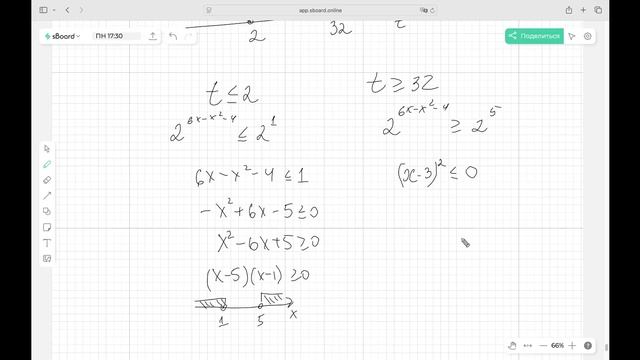 app.sboard.online
sBoard
ПН 17:30
Поделиться
2 32 t
t ≤ 2
2^{6x-x^2-4} ≤ 2^1
6x - x^2 - 4 ≤ 1
-x^2 + 6x - 5 ≤ 0
x^2 - 6x + 5 ≥ 0
(x-5)(x-1) ≥ 0
1 5 x
t ≥ 32
2^{6x-x^2-4} ≥ 2^5
(x-3)^2 ≤ 0
66%